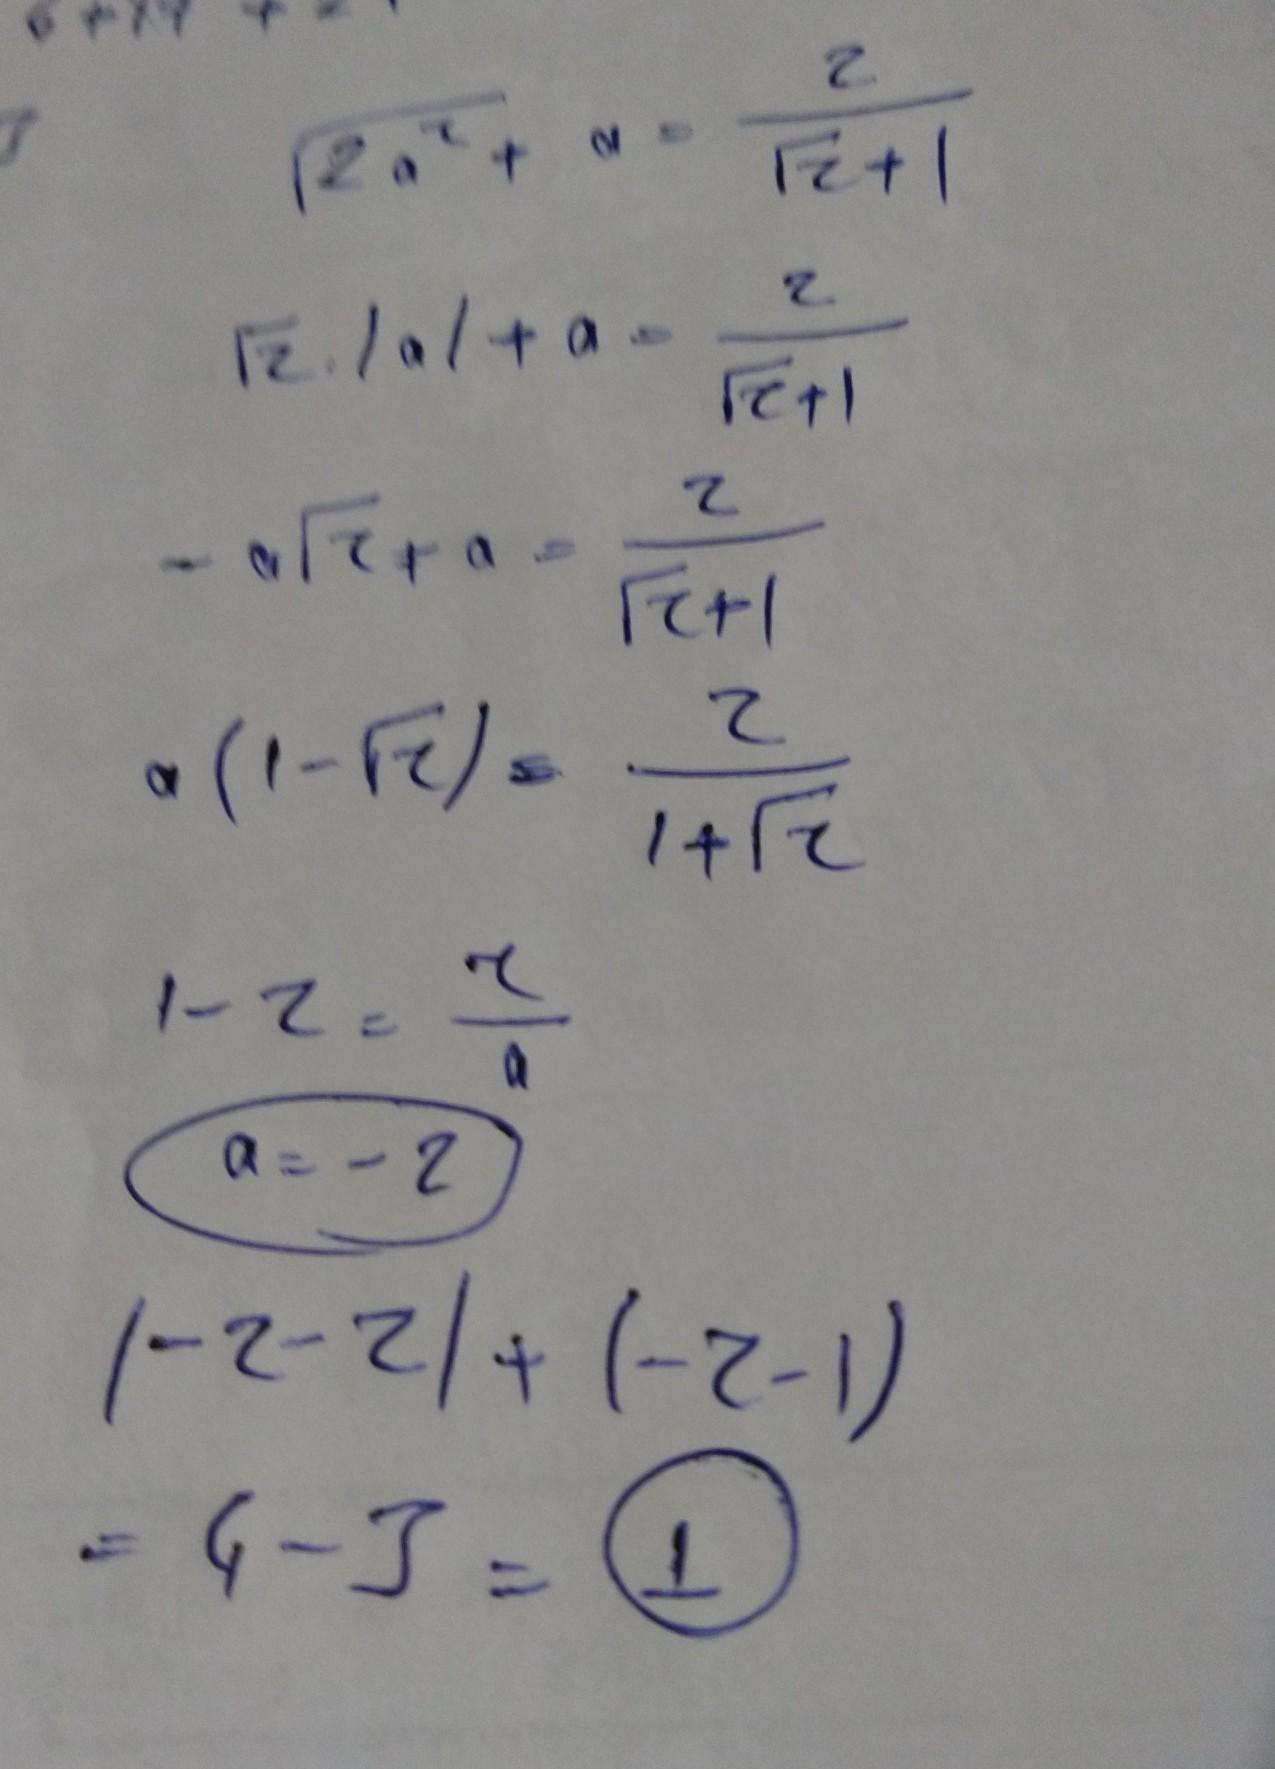 √2a² + a = 2/(√2+1)
√2 . |a| + a = 2/(√2+1)
- a√2 + a = 2/(√2+1)
a(1-√2) = 2/(1+√2)
1-2 = 2/a
a = -2
|-2-2| + (-2-1)
= 4 - 3 = 1